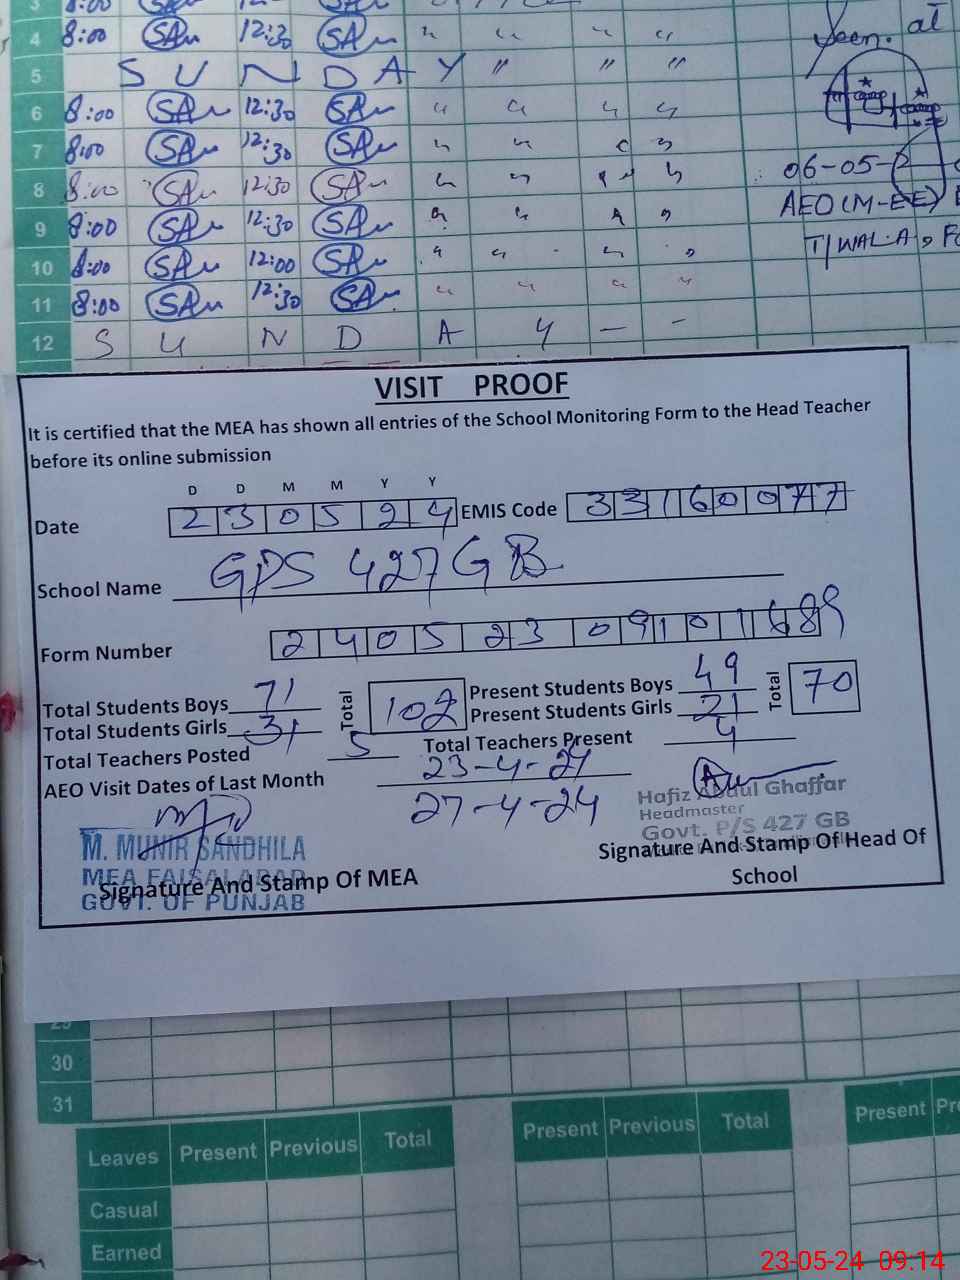 3 8:00
4 8:00 SA 12:30 SA " " " "
5 S U N D A Y " " "
6 8:00 SA 12:30 SA " " " "
7 8:00 SA 12:30 SA " "
8 8:00 SA 12:30 SA " "
9 8:00 SA 12:30 SA " "
10 8:00 SA 12:00 SA " " "
11 8:00 SA 12:30 SA " " " "
12 S U N D A Y — –
Seen. at
06-05-2
AEO (M-EE)
T/WALA,
VISIT PROOF
It is certified that the MEA has shown all entries of the School Monitoring Form to the Head Teacher
before its online submission
D D M M Y Y
Date 2 3 0 5 2 4 EMIS Code 3 3 1 6 0 0 7 7
School Name GPS 427 GB
Form Number 2 4 0 5 2 3 0 9 1 0 1 6 8 9
Total Students Boys 71 Total 102 Present Students Boys 49 Total 70
Total Students Girls 31 Present Students Girls 21
Total Teachers Posted 5 Total Teachers Present 4
AEO Visit Dates of Last Month 23-4-24
27-4-24
Hafiz Abdul Ghaffar
Headmaster
Govt. P/S 427 GB
M. MUNIR SANDHILA
MEA FAISALABAD
GOVT. OF PUNJAB
Signature And Stamp Of MEA
Signature And Stamp Of Head Of
School
29
30
31
Leaves Present Previous Total Present Previous Total Present Pre
Casual
Earned
23-05-24 09:14